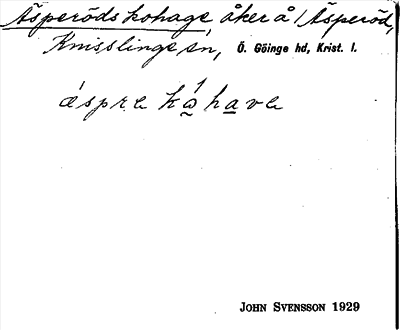 Äsperöds kohage åker å / Äsperöd,
Knisslinge sn, Ö. Göinge hd, Krist. l.
ǽspre kåhave
JOHN SVENSSON 1929